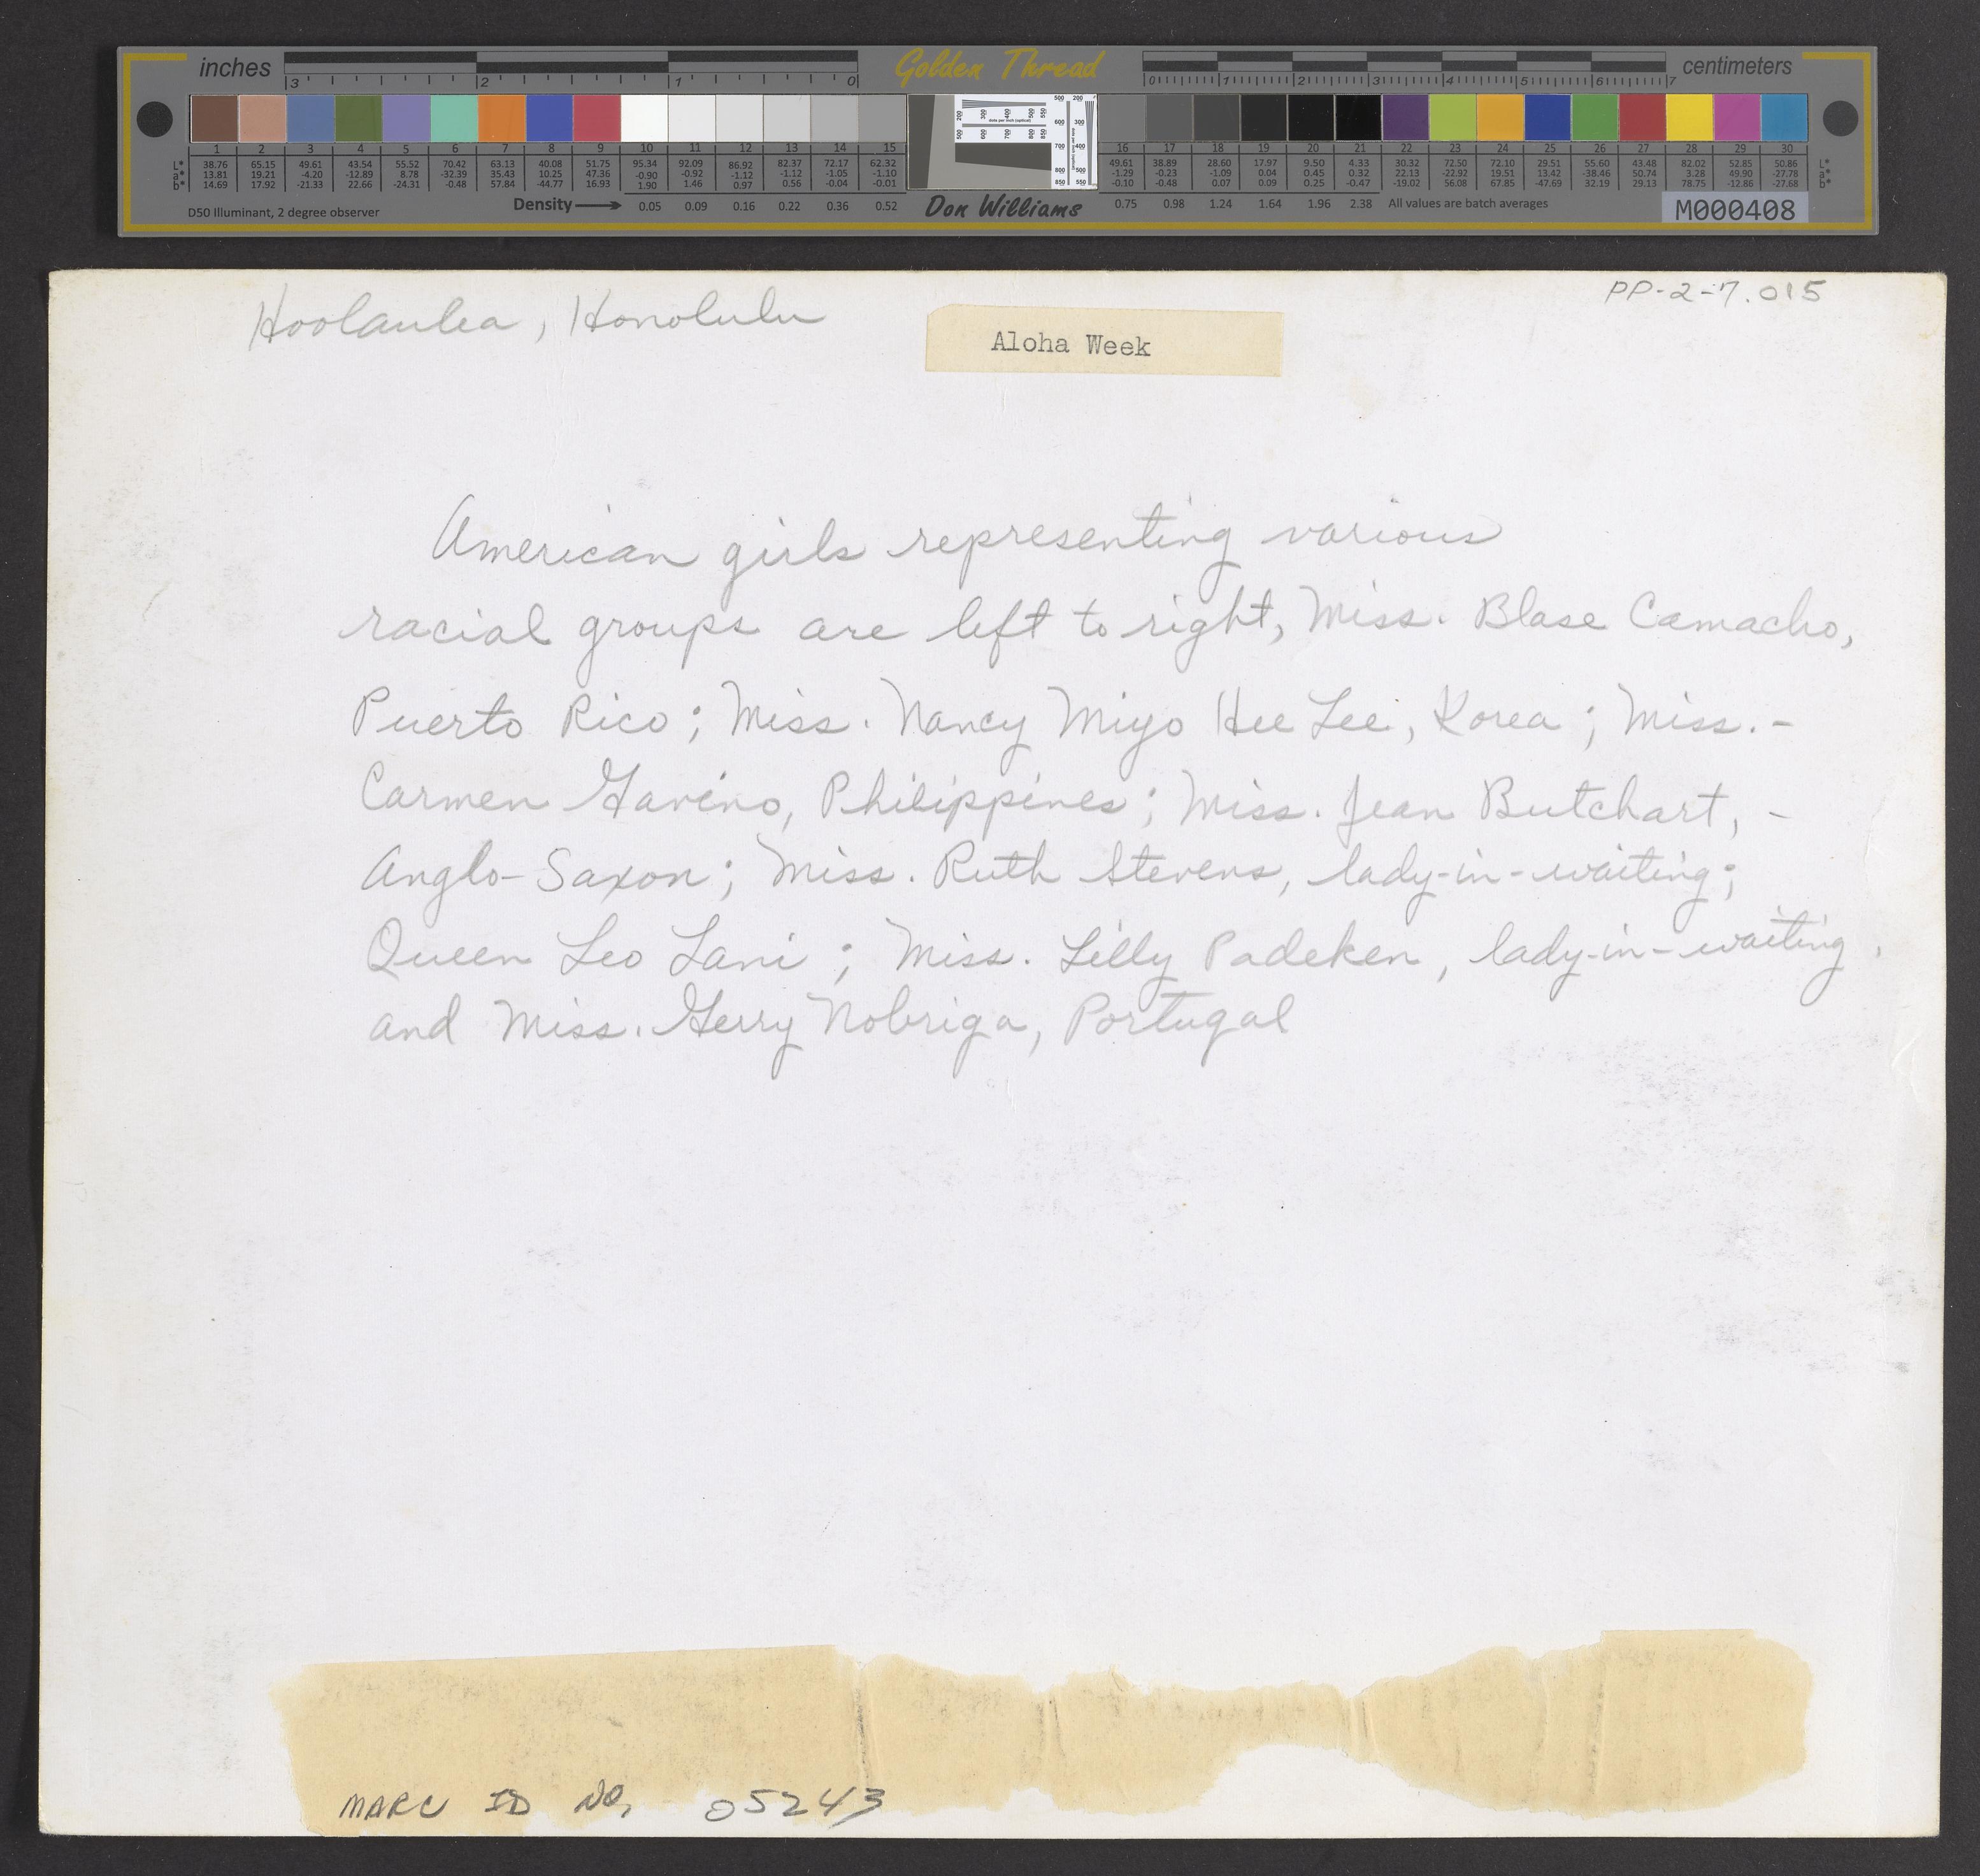 inches 3 2 1 0 Golden Thread 0 1 2 3 4 5 6 7 centimeters
1 2 3 4 5 6 7 8 9 10 11 12 13 14 15 16 17 18 19 20 21 22 23 24 25 26 27 28 29 30
L* 38.76 65.15 49.61 43.54 55.52 70.42 63.13 40.08 51.75 95.34 92.09 86.92 82.37 72.17 62.32 49.61 38.89 28.60 17.97 9.50 4.33 30.32 72.50 72.10 29.51 55.60 43.48 82.02 52.85 50.86 L*
a* 13.81 19.21 -4.20 -12.89 8.78 -32.39 35.43 10.25 47.36 -0.90 -0.92 -1.12 -1.12 -1.05 -1.10 -1.29 -0.23 -1.09 0.04 0.45 0.32 22.13 -22.92 19.51 13.42 -38.46 50.74 3.28 49.90 -27.78 a*
b* 14.69 17.92 -21.33 22.66 -24.31 -0.48 57.84 -44.77 16.93 1.90 1.46 0.97 0.56 -0.04 -0.01 -0.10 -0.48 0.07 0.09 0.25 -0.47 -19.02 56.08 67.85 -47.69 32.19 29.13 78.75 -12.86 -27.68 b*
D50 Illuminant, 2 degree observer Density 0.05 0.09 0.16 0.22 0.36 0.52 Don Williams 0.75 0.98 1.24 1.64 1.96 2.38 All values are batch averages M000408
PP-2-7.015
Hoolaulea, Honolulu
Aloha Week
American girls representing various
racial groups are left to right, Miss. Blase Camacho,
Puerto Rico; Miss. Nancy Miyo Hee Lee, Korea; Miss. -
Carmen Gavino, Philippines; Miss. Jean Butchart, -
Anglo-Saxon; Miss. Ruth Stevens, lady-in-waiting;
Queen Leo Lani; Miss. Lilly Padeken, lady-in-waiting,
and Miss. Gerry Nobriga, Portugal
MARC ID NO, 05243